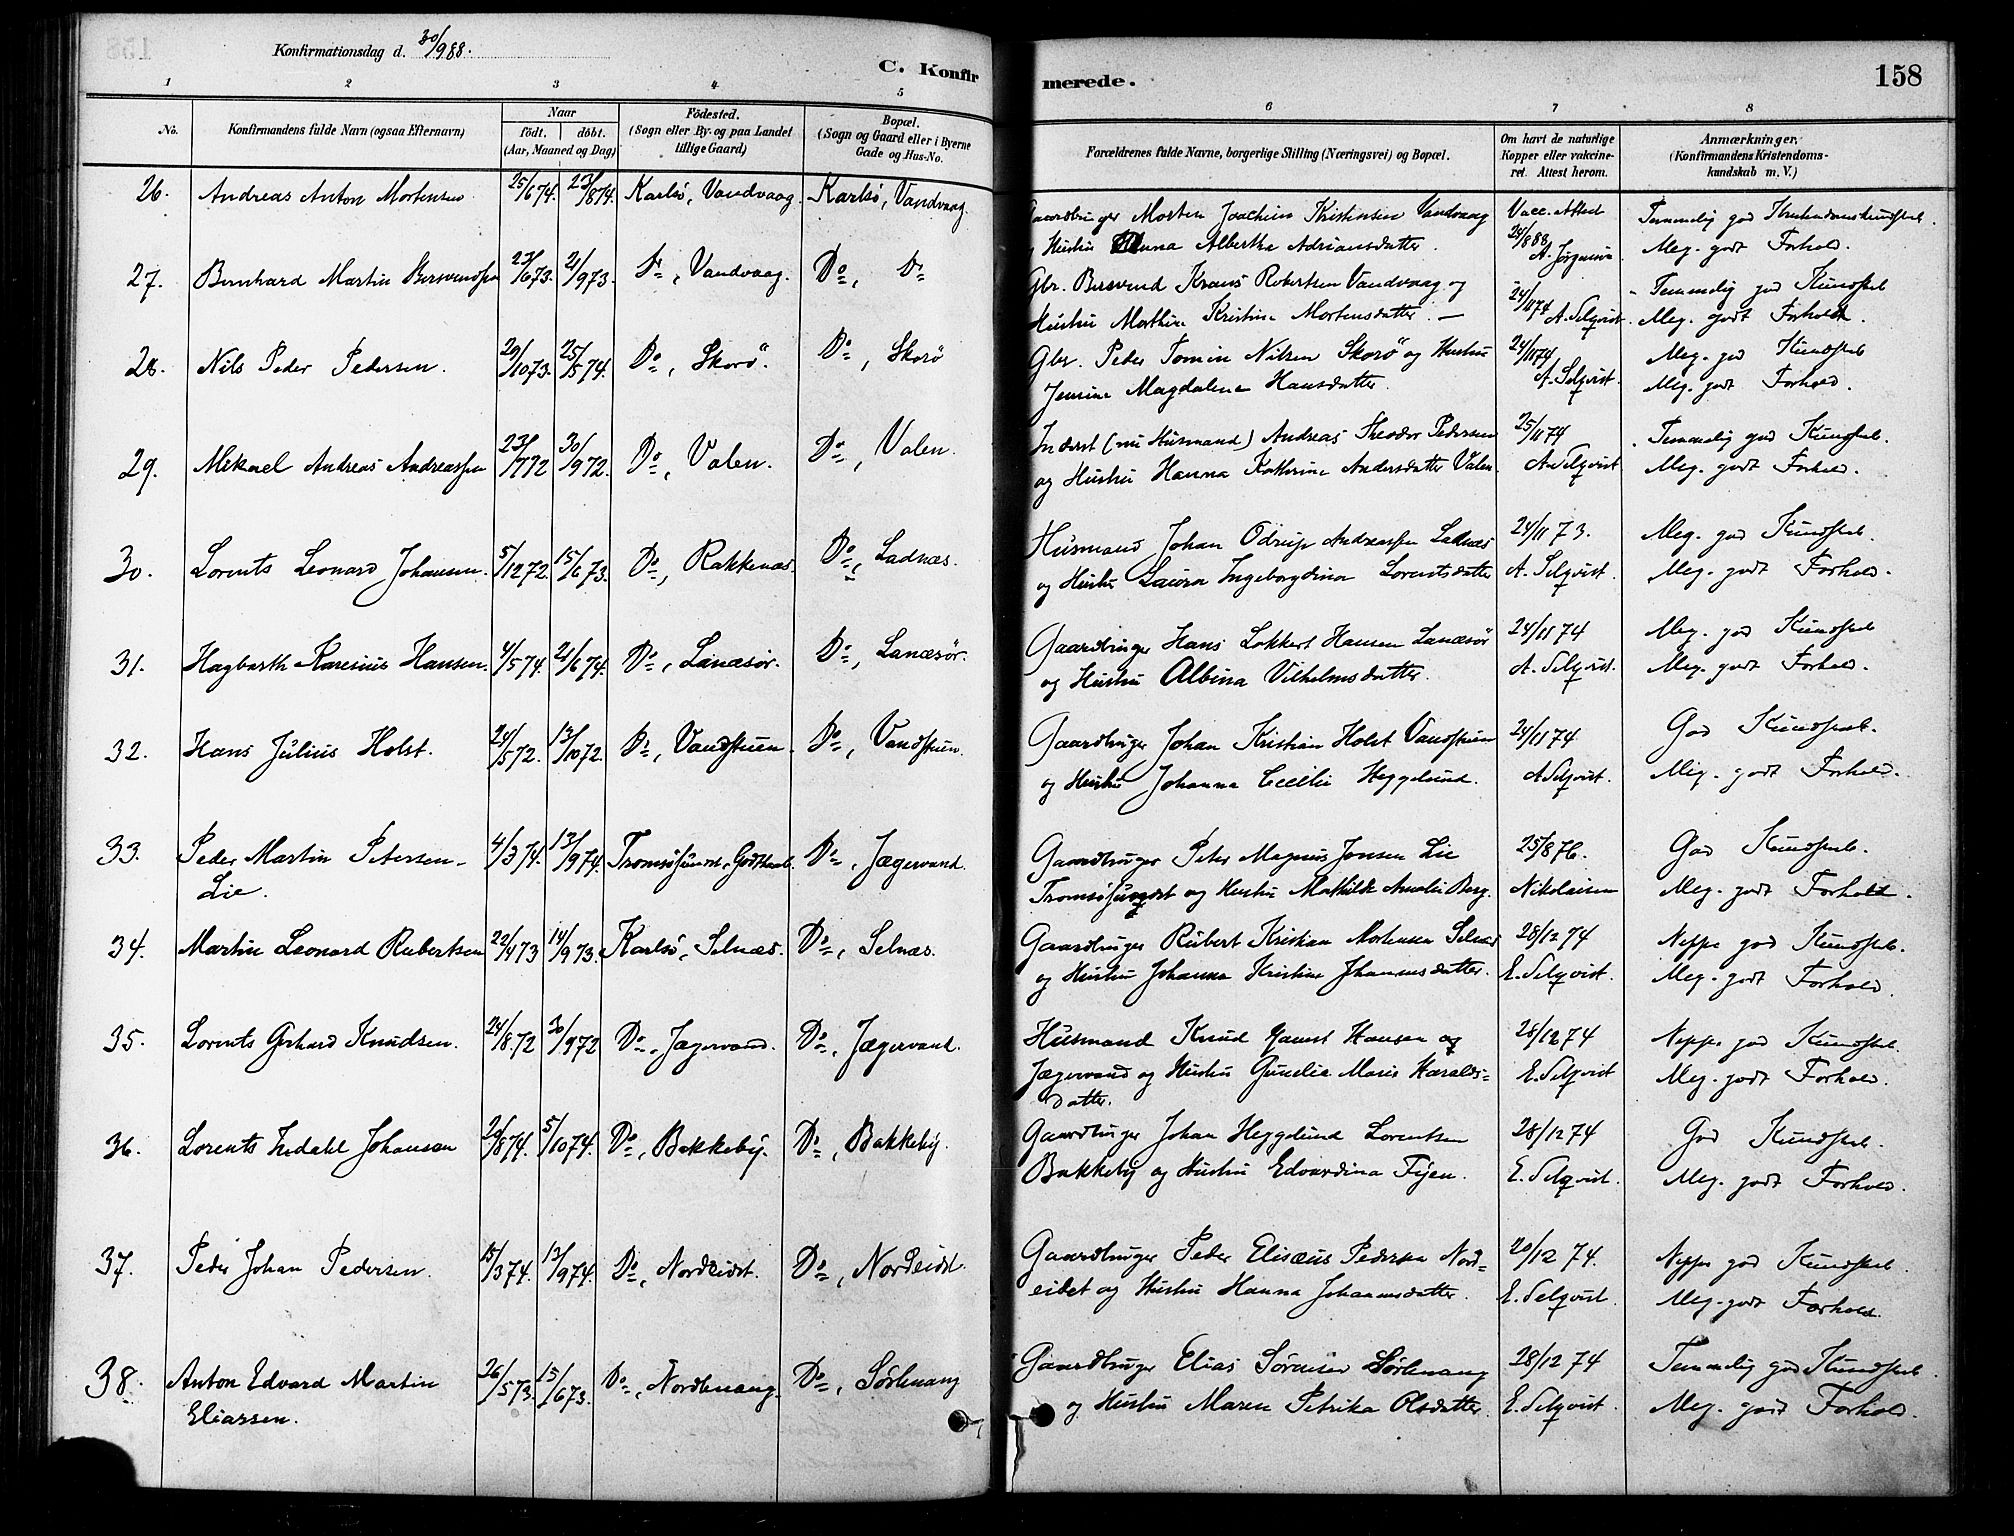 Konfirmationsdag d. 30/9 88.
C. Konfirmerede.
158
1 2 3 4 5 6 7 8
No.
Konfirmandens fulde Navn (ogsaa Efternavn)
Naar
födt. döbt.
(Aar, Maaned og Dag)
Födested.
(Sogn eller By- og paa Landet
tillige Gaard)
Bopæl.
(Sogn og Gaard eller i Byerne
Gade og Hus-No.
Forældrenes fulde Navne, borgerlige Stilling (Næringsvei) og Bopæl.
Om havt de naturlige
Kopper eller vakcine-
ret. Attest herom.
Anmærkninger,
(Konfirmandens Kristendoms-
kundskab m. V.)
26. Andreas Anton Mortensen 25/6 74. 23/8 74. Karlsö, Vandvaag. Karlsö, Vandvaag. Gaardbruger Morten Joachim Kristensen Vandvaag Vacc. Attest Temmelig god Kristendomskundskab.
og Hustru Anna Albertha Adriansdatter. 24/8 88 A. Jörgensen Meg. godt Forhold.
27. Bernhard Martin Bersvendsen 23/6 73. 21/9 73. Do, Vandvaag. Do, Do Gbr. Bersvend Kraus Robertsen Vandvaag og 24/11 74 Temmelig god Kundskab
Hustru Mathea Kristina Mortensdatter. A. Selqvist. Meg. godt Forhold.
28. Nils Peder Pedersen. 29/10 73. 25/5 74. Do, Skorö. Do, Skorö Gbr. Peder Tomin Nilsen Skorö og Hustru 24/11 74 Meg. god Kundskab
Jensine Magdalena Hansdatter. A. Selqvist. Meg. godt Forhold.
29. Mikael Andreas Andreassen 23/7 72 30/9 72. Do, Valen. Do, Valen. Inderst (nu Husmand) Andreas Theodor Pedersen 25/11 74 Temmelig god Kundskab.
og Hustru Hanna Kathrine Andersdatter Valen. A. Selqvist Meg. godt Forhold.
30. Lorents Leonard Johansen. 5/12 72. 15/6 73. Do, Rakkenæs. Do, Ladnæs. Husmand Johan Odrup Andreassen Ladnæs 24/11 73. Meg. god Kundskab.
og Hustru Laura Ingeborgdina Lorentsdatter A. Selqvist. Meg. godt Forhold.
31. Hagbarth Karesius Hansen. 4/5 74. 21/6 74. Do, Lanæsör. Do, Lanæsör. Gaardbruger Hans Lokkert Hansen Lanæsör 24/11 74 Meg. god Kundskab
og Hustru Albina Vilhelmsdatter. A. Selqvist. Meg. godt Forhold.
32. Hans Julius Holst. 24/5 72. 13/10 72. Do, Vandstuen. Do, Vandstuen. Gaardbruger Johan Kristian Holst Vandstuen 24/11 74 God Kundskab.
og Hustru Johanna Cecilie Heggelund. A. Selqvist. Meg. godt Forhold.
33. Peder Martin Petersen- 4/3 74. 13/9 74. Tromsösund, Godthaab. Do, Jægervand. Gaardbruger Peter Magnus Jensen Lie 25/8 76. God Kundskab.
Lie. Tromsösundet og Hustru Mathilde Amalie Berg. Nikolaisen Meg. godt Forhold.
34. Martin Leonard Rubertsen 22/4 73 14/9 73. Karlsö, Selnæs. Do, Selnæs. Gaardbruger Rubert Kristian Mortensen Selnæs 28/12 74 Neppe god Kundskab.
og Hustru Johanna Kristine Johannesdatter. E. Selqvist. Meg. godt Forhold.
35. Lorents Gerhard Knudsen. 24/8 72 30/9 72 Do, Jægervand. Do, Jægervand. Husmand Knud Hansen og 28/12 74 Neppe god Kundskab.
Jægervand og Hustru Gunelia Marie Haralds- E. Selqvist Meg. godt Forhold.
datter.
36. Lorents Indahl Johansen 24/8 74. 5/10 74. Do, Bakkeby. Do, Bakkeby. Gaardbruger Johan Heggelund Lorentsen 28/12 74 God Kundskab.
Bakkeby og Hustru Edvardina Fijen. E. Selqvist. Meg. godt Forhold.
37. Peder Johan Pedersen. 15/3 74. 13/9 74. Do, Nordeidet. Do, Nordeidet. Gaardbruger Peder Elisæus Pedersen Nord- 20/12 74. Neppe god Kundskab.
eidet og Hustru Hanna Johannesdatter. E. Selqvist. Meg. godt Forhold.
38. Anton Edvard Martin 26/5 73. 15/6 73. Do, Nordlenang. Do, Sörlenang Gaardbruger Elias Sörensen Sörlenang 28/12 74 Temmelig god Kundskab.
Eliassen. og Hustru Maren Petrika Olsdatter. E. Selqvist. Meg. godt Forhold.